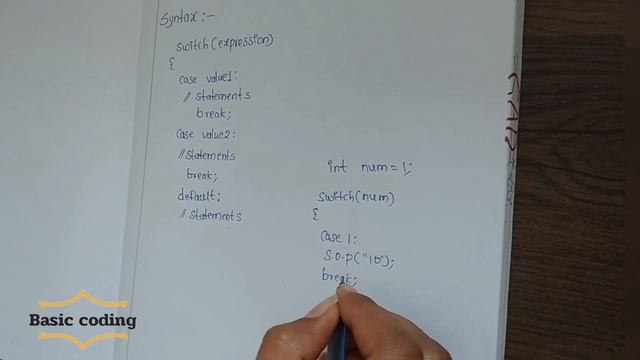 Syntax:-
switch(expression)
{
case value1:
// statements
break;
case value2:
//statements
break;
default:
// statements
int num=1;
switch(num)
{
case 1:
S.O.P("10");
break;
Basic coding